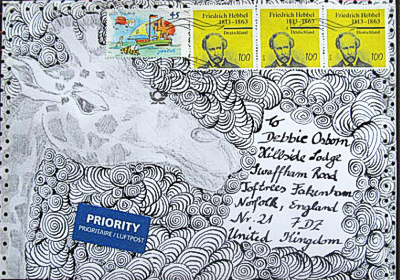 45
Friedrich Hebbel
1813-1863
Deutschland
100
Friedrich Hebbel
1813-1863
Deutschland
100
Friedrich Hebbel
1813-1863
Deutschland
100
To
Debbie Osborn
Hillside Lodge
Swaffham Road
Toftrees Fakenham
Norfolk, England
Nr. 21 7DZ
United Kingdom
PRIORITY
PRIORITAIRE / LUFTPOST